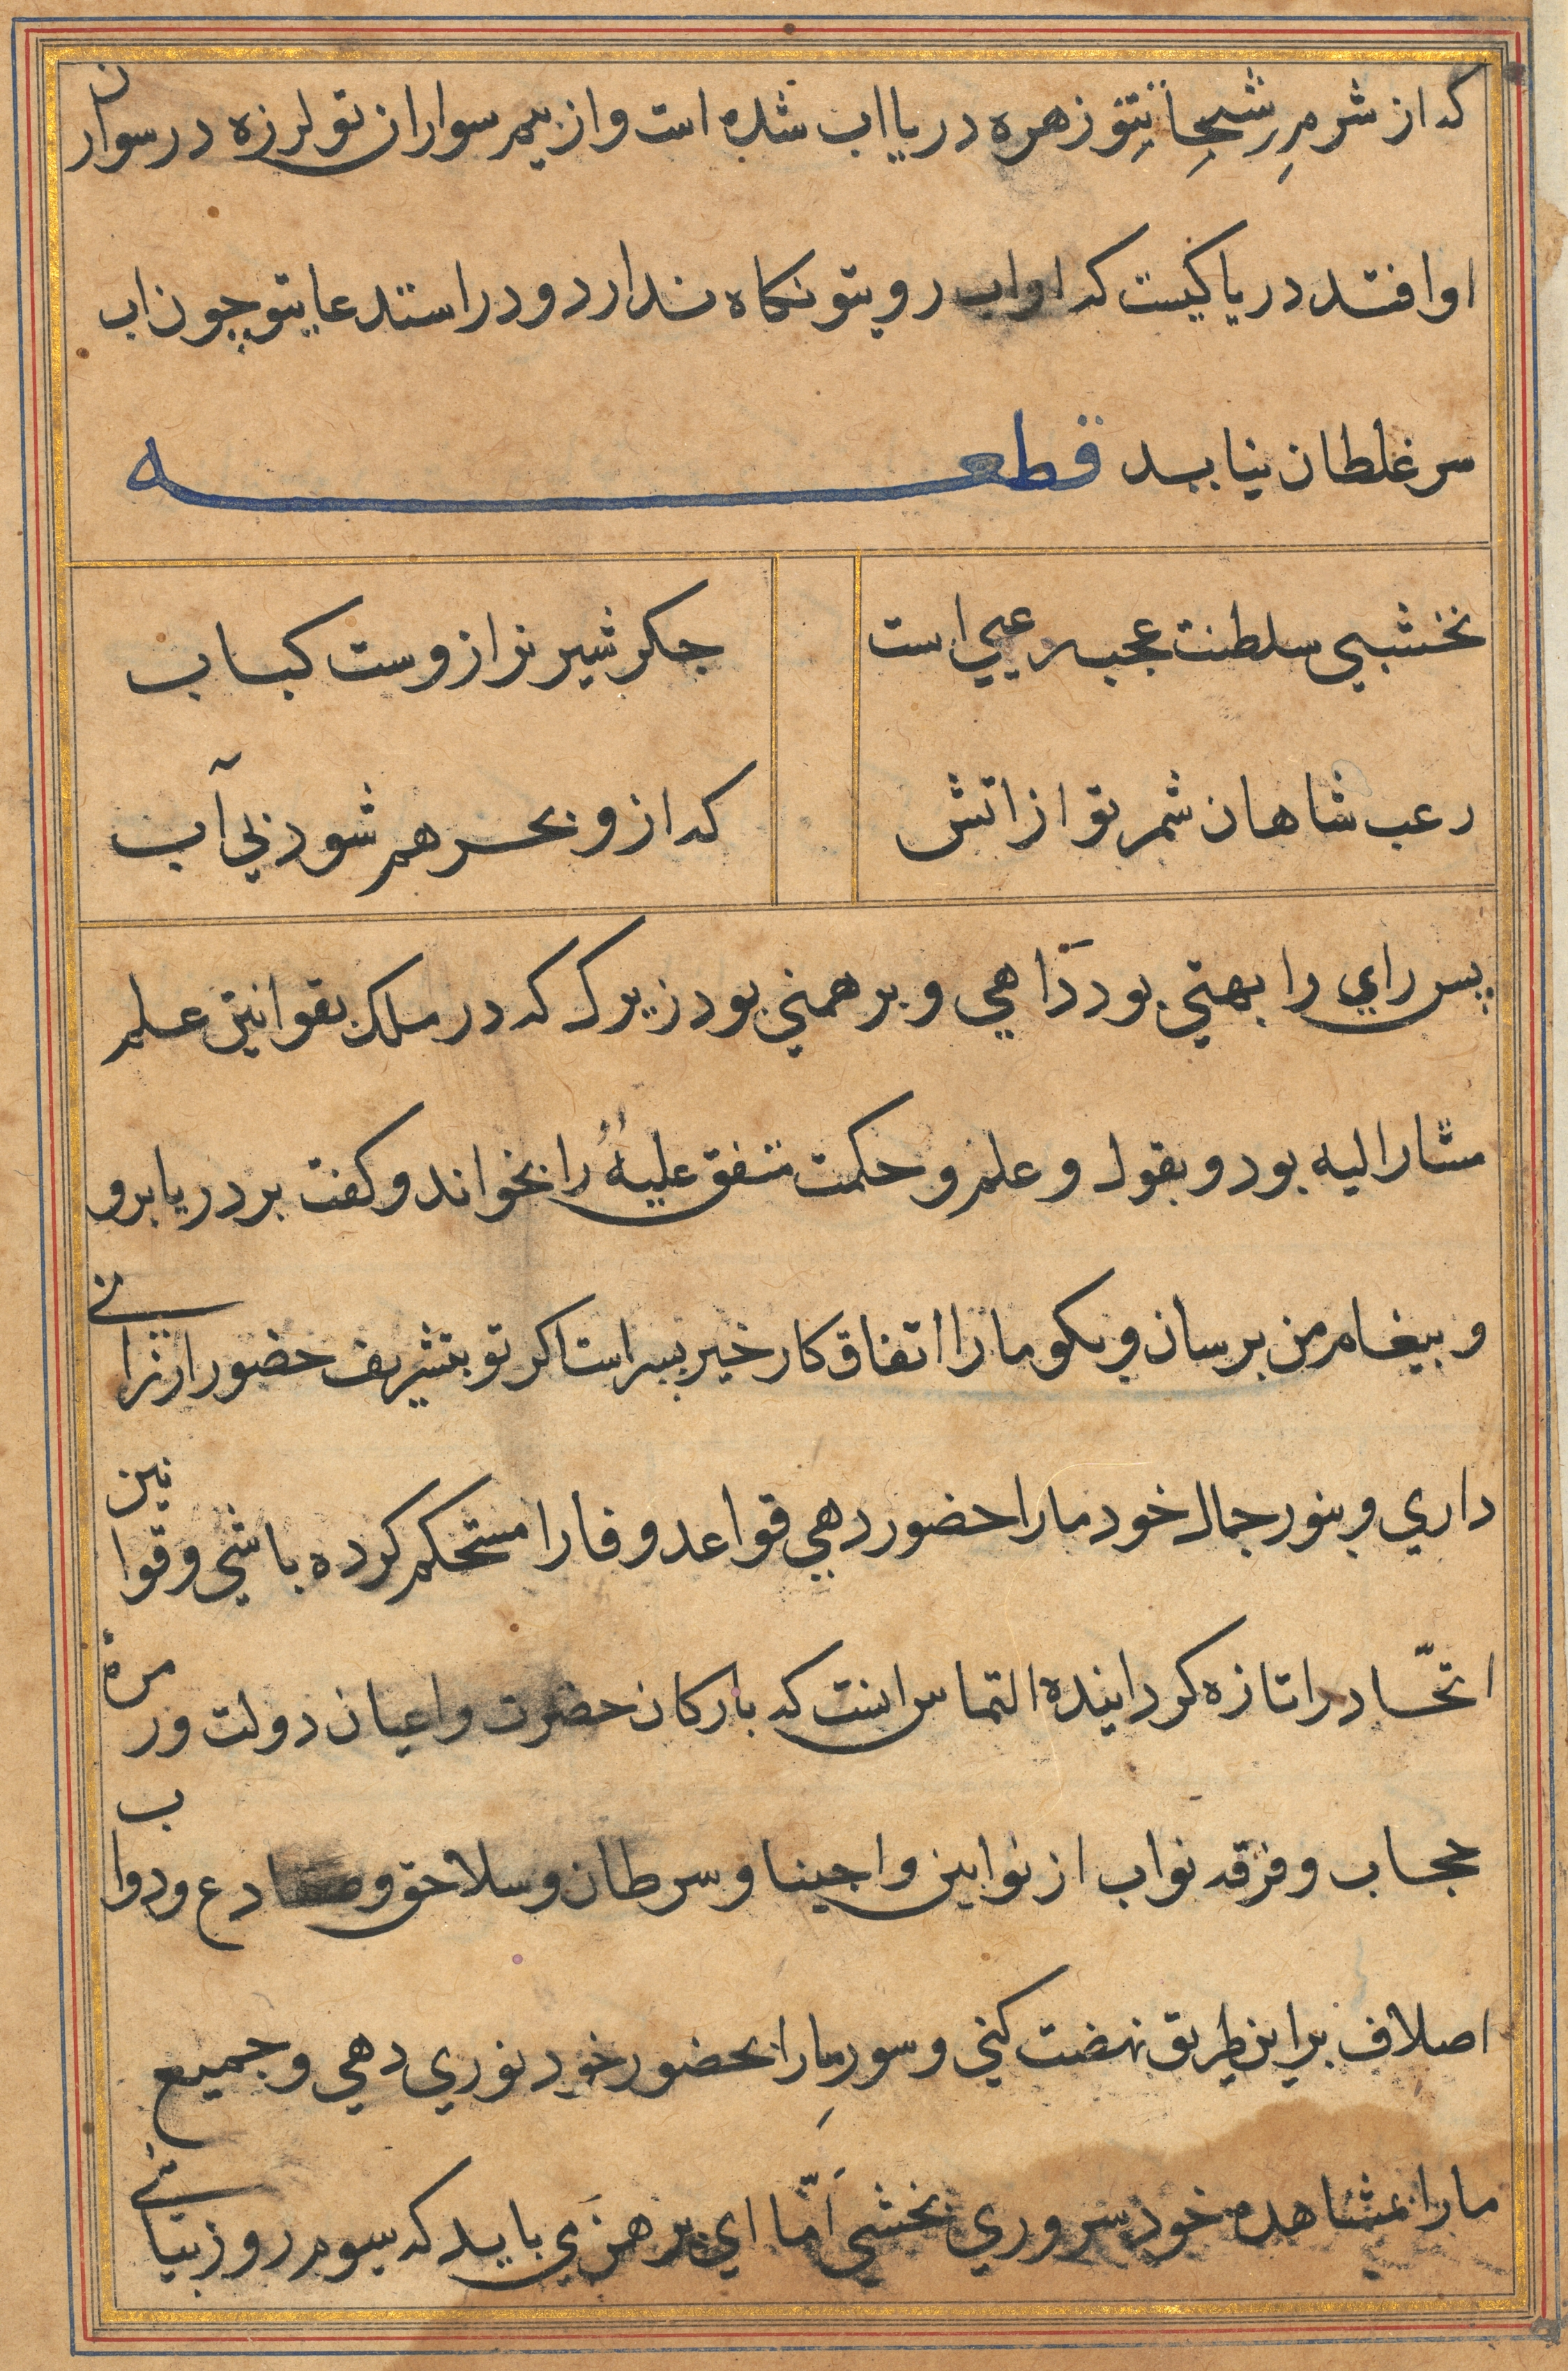 که از شرمِ رشحِاتِ تو زهره دریا اب شده است و از بیم سواران تو لرزه در سواران
او افتد دریا کیست که او اب رو بتو نکاه ندارد و در استدعا بتو چون اب
سر غلطان نیاید قطعه
نخشبی سلطنت عجب رعبی است
جکر شیر نر ازوست کباب
رعب شاهان شمر تو از اتش
که ازو بحر هم شود بی آب
پس رای را بهتی بود دَاهی و برهمنی بود زیرک که در ملک بقوانین علم
مشار الیه بود و بقول و علم و حکمت متفق علیهُ را بخواند و کفت بر دریا برو
و پیغام من برسان و بکو ما را اتفاق کار خیر پسر است اکر تو بتشریف حضور ارزانی
داری و بنور جمال خود ما را حضور دهی قواعد وفا را مستحکم کرده باشی و قوانین
اتحّاد را تازه کردانیده التماس اینست که بارکان حضرت و اعیان دولت و زمره
حجاب و فرقه نواب از نوابین واحینا و سرطان و سلاحق و ضفادع و دواب
اصلاف براین طریق نهضت کنی و سورِ ما را بحضور خود نوری دهی و جمیع
ما را بمشاهده خود سروری بخشی اَمّا ای برهمن می باید که سیوم روز بیائی